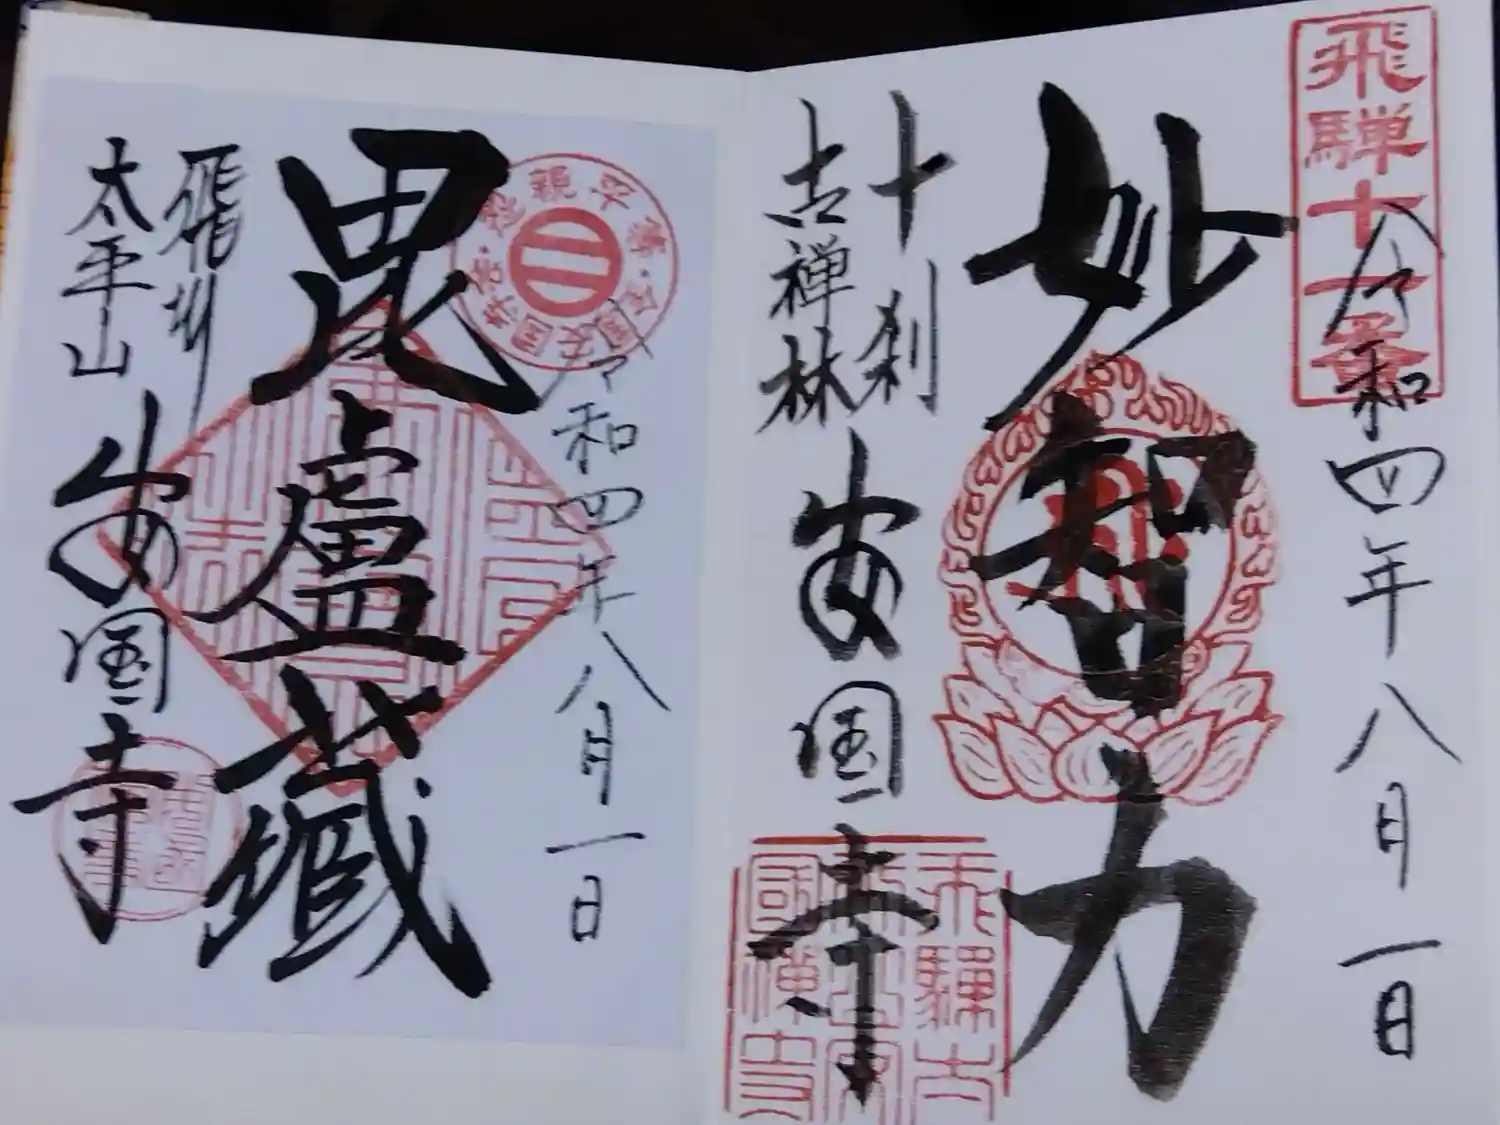 飛騨十一番
令和四年八月一日
妙智力
十刹
古禅林
安国寺
令和四年八月一日
毘盧蔵
飛州
太平山
安国寺